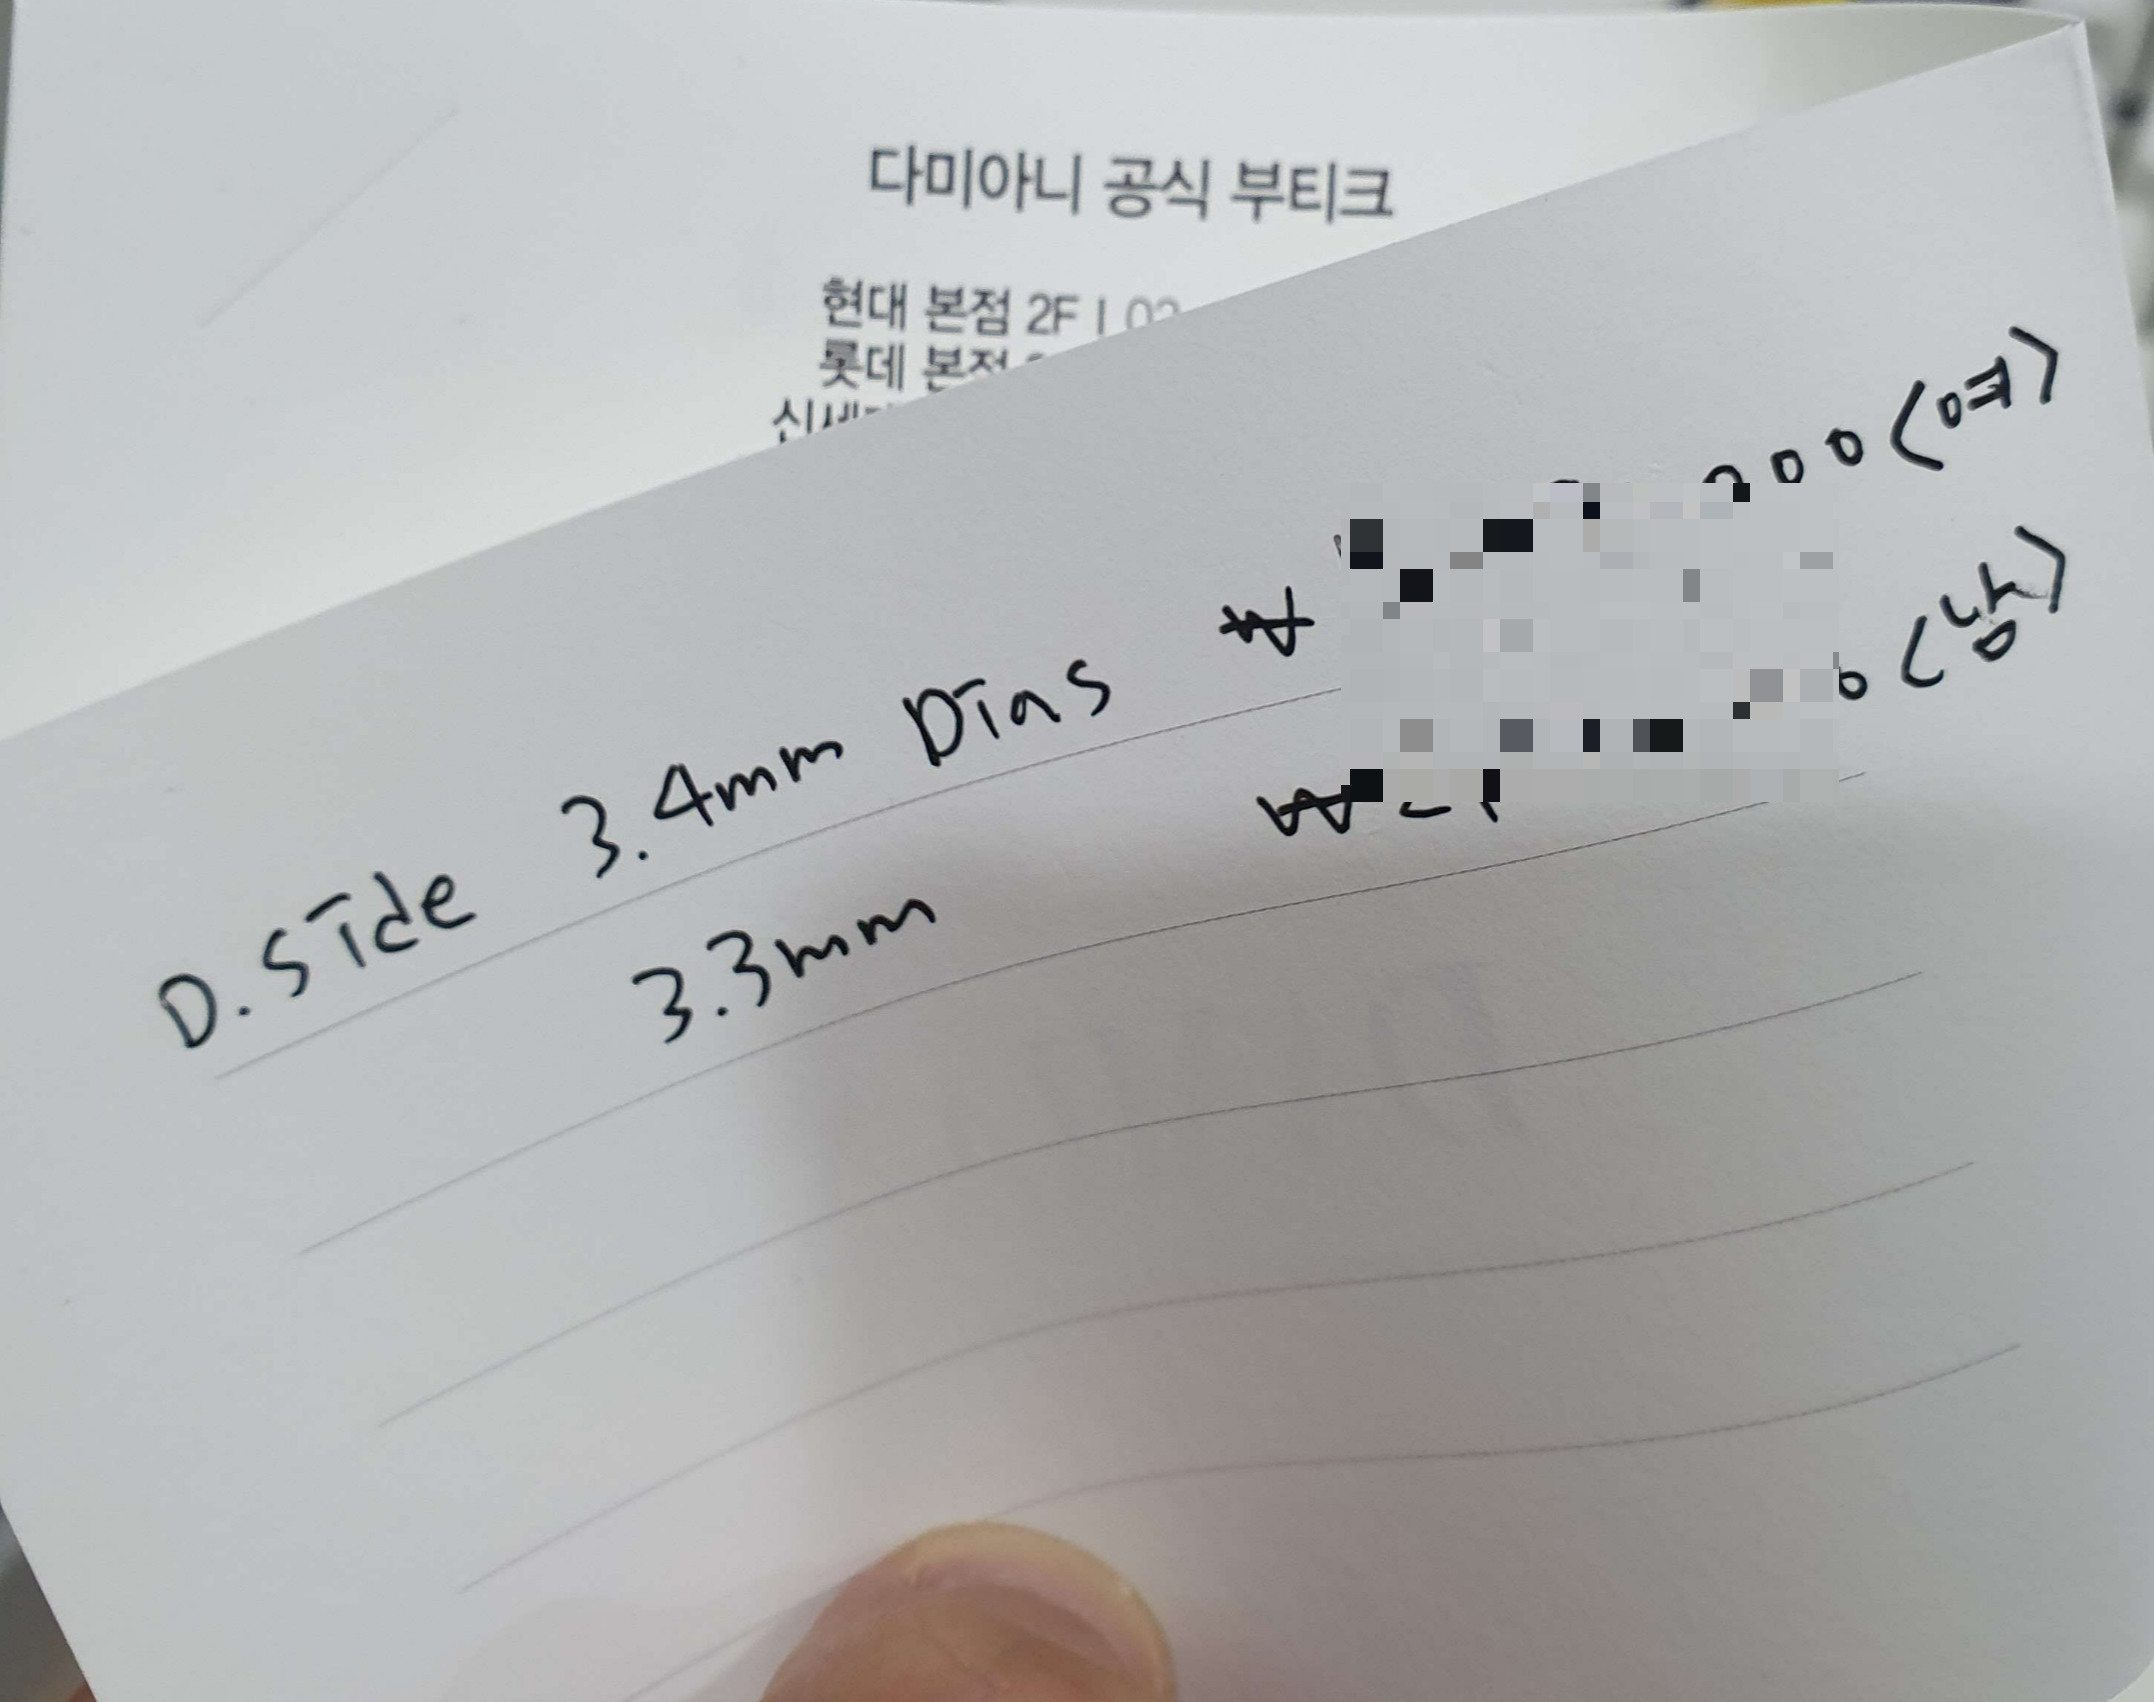 다미아니 공식 부티크
현대 본점 2F |
롯데 본점
D.Side 3.4mm Dias ₩ 000 (여)
3.3mm ₩ 0 (남)